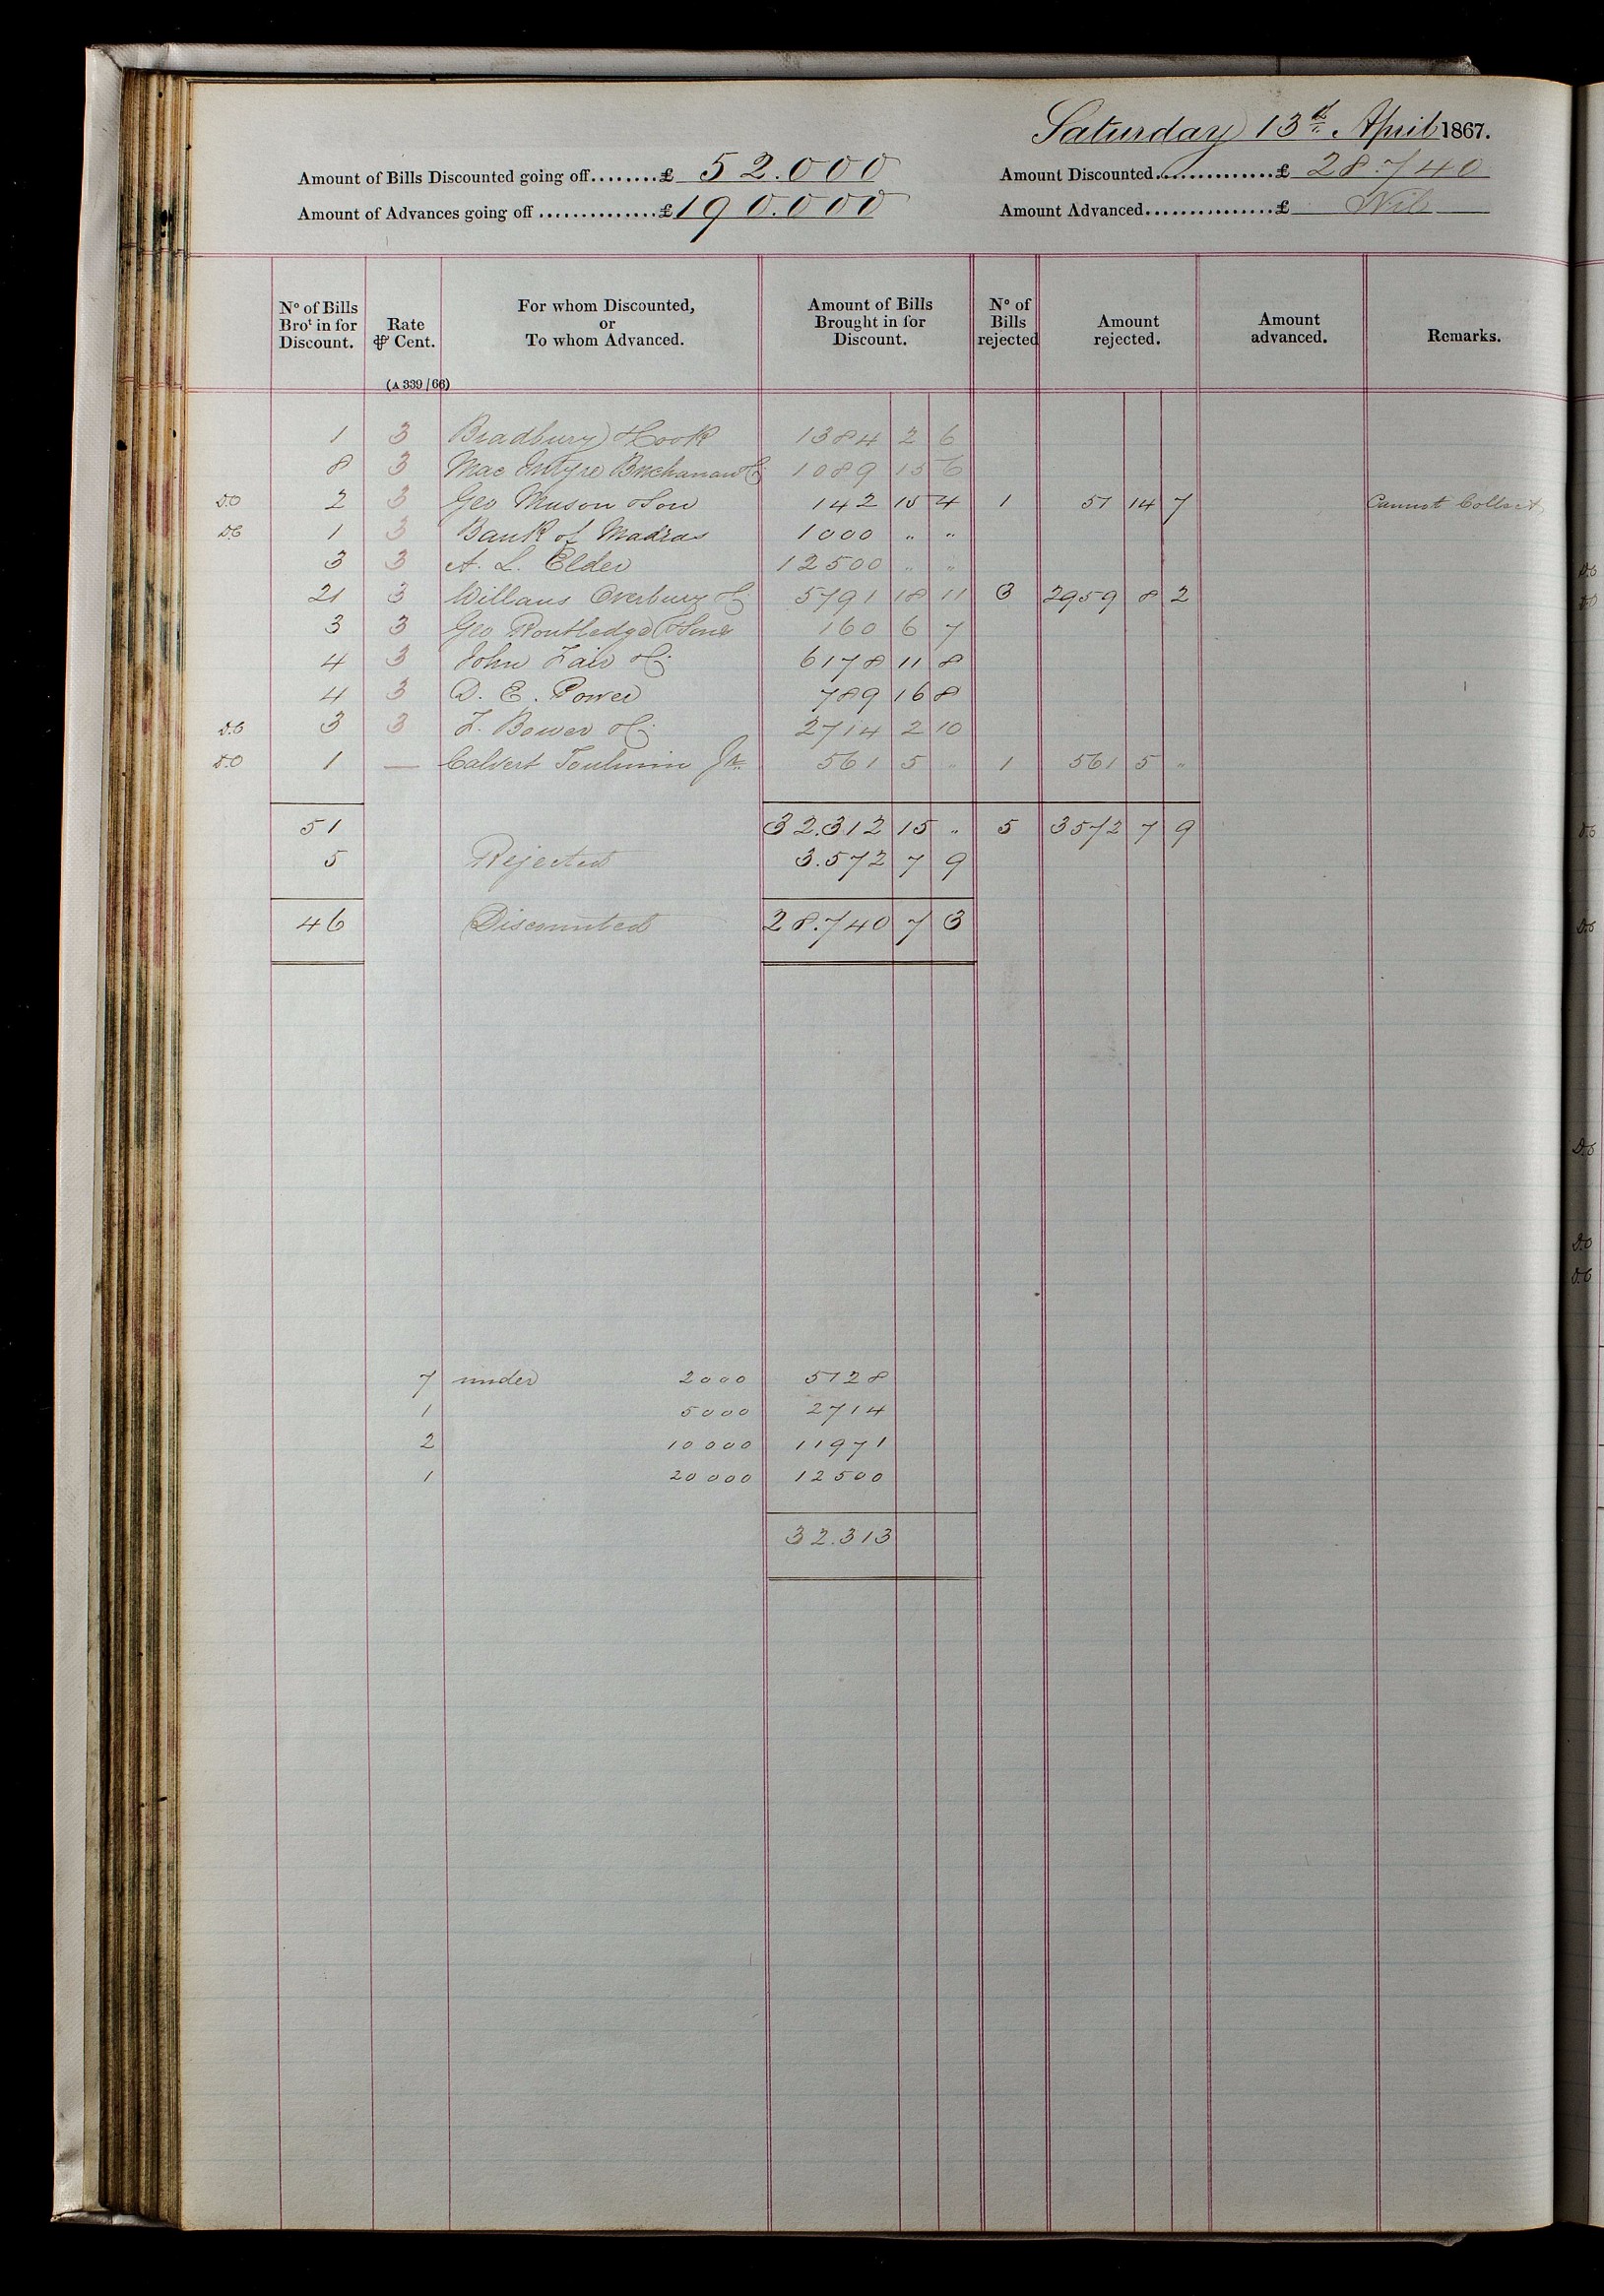 Saturday 13th April 1867.
Amount of Bills Discounted going off........£ 52.000 Amount Discounted...............£ 28.740
Amount of Advances going off ..............£ 190.000 Amount Advanced................£ Nil
No of Bills Brot in for Discount. Rate ⅌ Cent. For whom Discounted, or To whom Advanced. Amount of Bills Brought in for Discount. No of Bills rejected Amount rejected. Amount advanced. Remarks.
(A 339/66)
1 3 Bradbury & Cook 1384 2 6
8 3 Mac Intyre Buchanan & Co 1089 15 6
D.O 2 3 Geo Muson & Son 142 15 4 1 51 14 7 Cannot Collect
D.O 1 3 Bank of Madras 1000 " "
3 3 A. L. Elder 12500 " "
21 3 Willans Overbury & Co 5791 18 11 3 2959 8 2
3 3 Geo Routledge & Sons 160 6 7
4 3 John Fair & Co 6178 11 8
4 3 D. E. Power 789 16 8
D.O 3 3 F. Bower & Co 2714 2 10
D.O 1 — Calvert Toulmin Jr. 561 5 " 1 561 5 "
51 32.312 15 " 5 3572 7 9
5 Rejected 3.572 7 9
46 Discounted 28.740 7 3
7 under 2000 5128
1 5000 2714
2 10000 11971
1 20000 12500
32.313
D.O
D.O
D.O
D.O
D.O
D.O
D.O